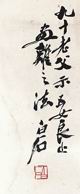 九十老父示子女良止
画雏之法白石